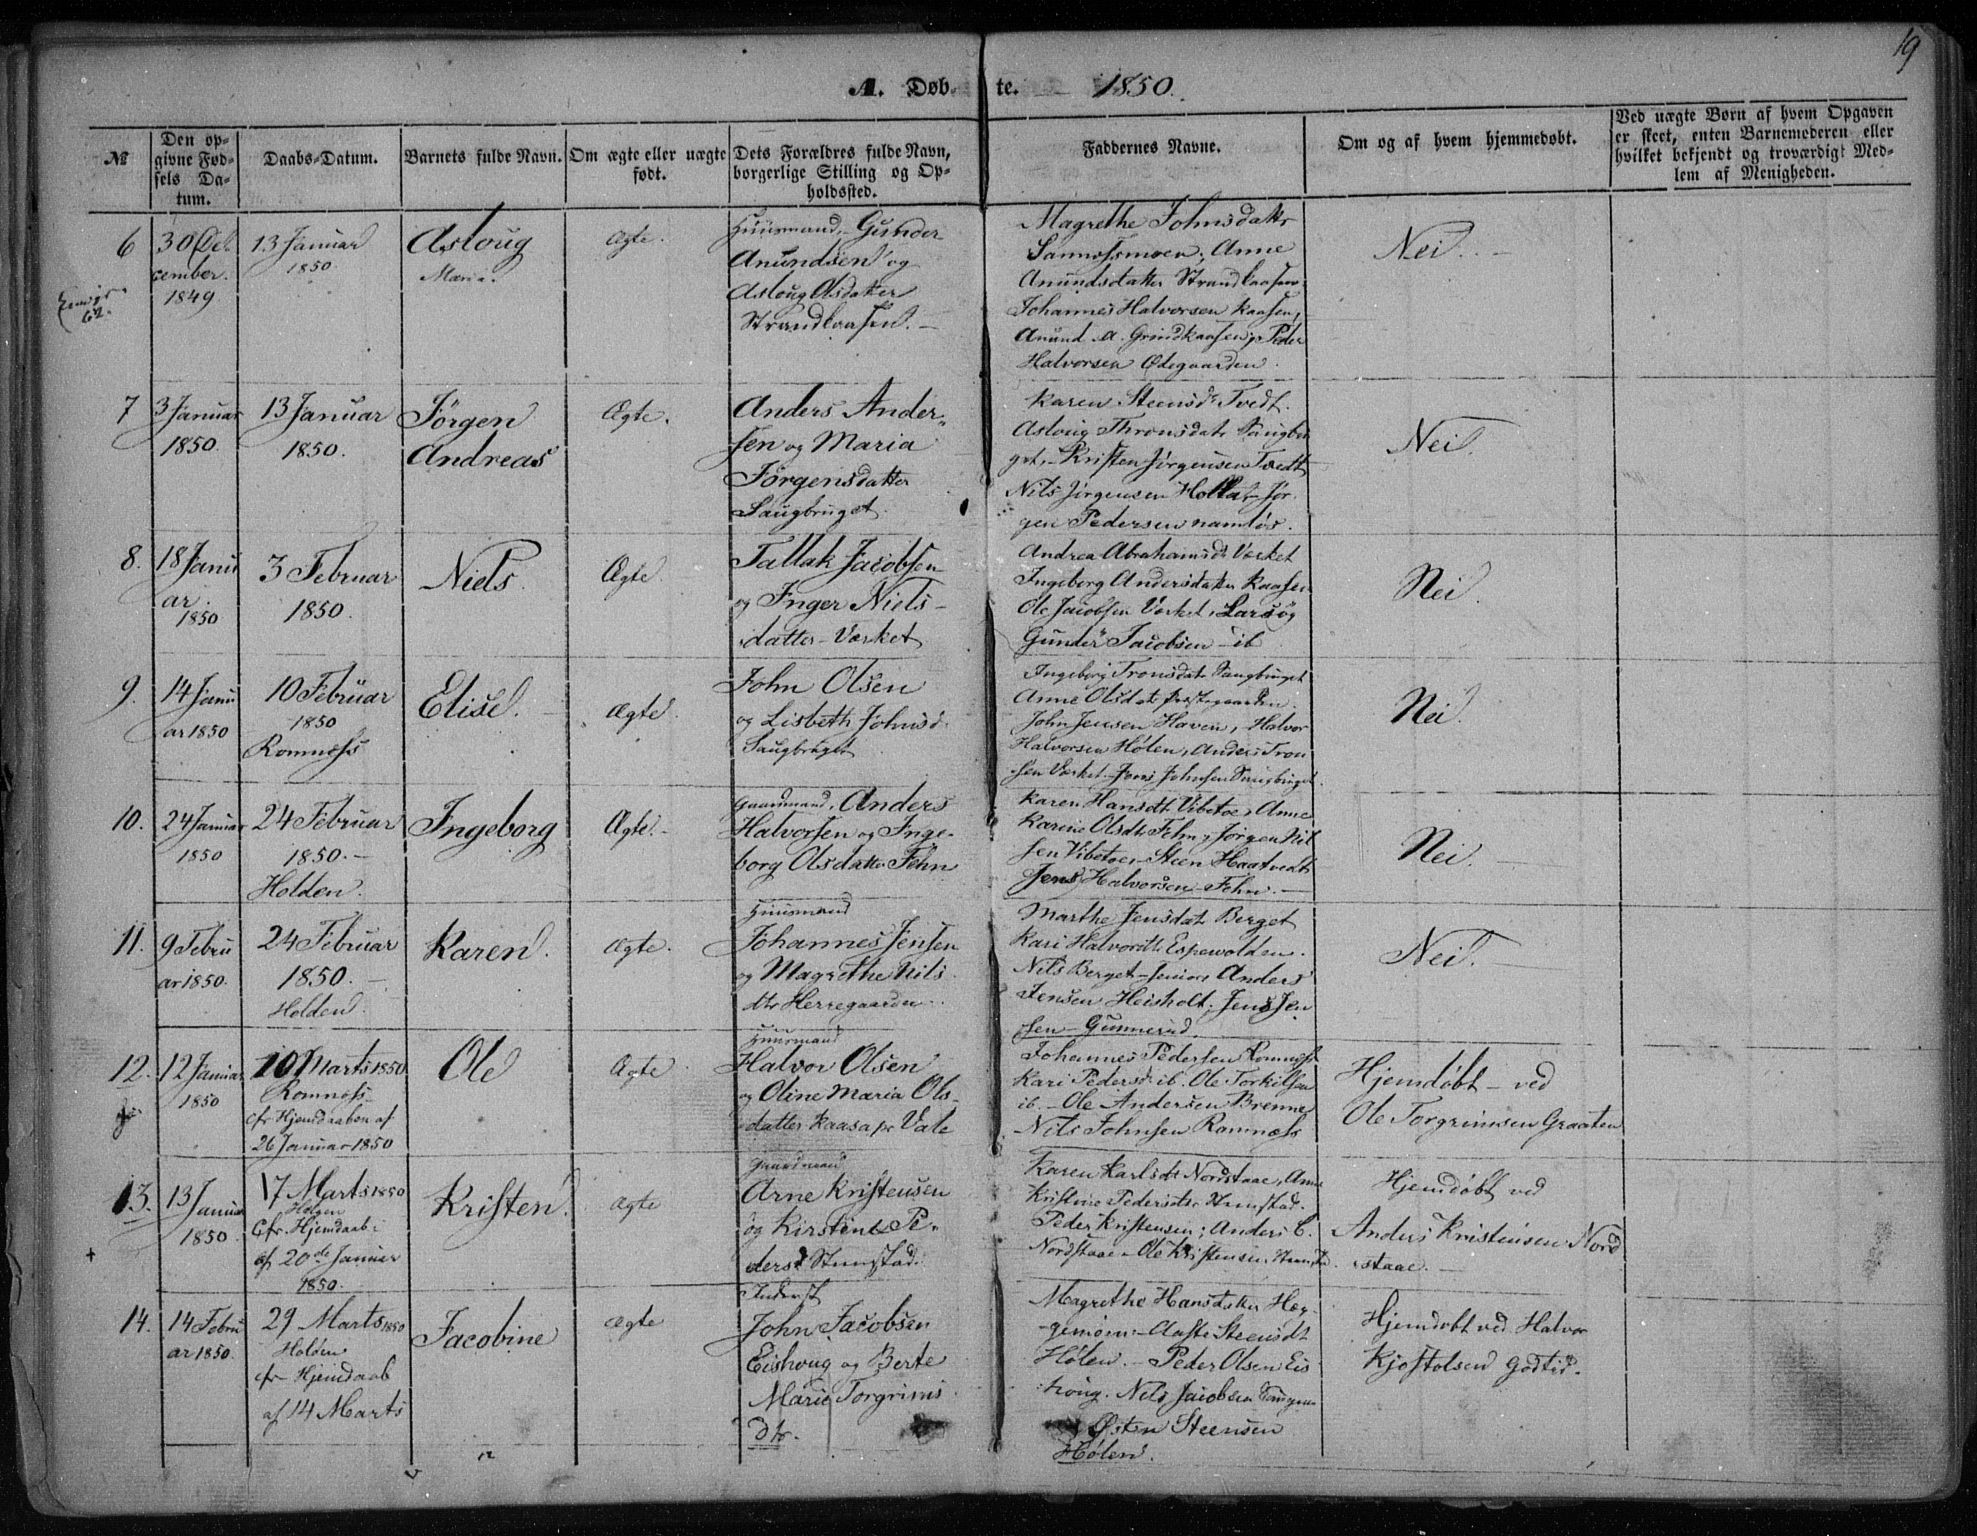 19
A. Døb- te. 1850.
№
Den op-
givne Fød-
sels Da-
tum.
Daabs-Datum.
Barnets fulde Navn.
Om ægte eller uægte
født.
Dets Forældres fulde Navn,
borgerlige Stilling og Op-
holdssted.
Faddernes Navne.
Om og af hvem hjemmedøbt.
Ved uægte Børn af hvem Opgaven
er skeet, enten Barnemoderen eller
hvilket bekjendt og troværdigt Med-
lem af Menigheden.
6
62.
30 De-
cember
1849
13 Januar
1850
Asloug
Maria.
Ægte.
Huusmand, Gunder
Anundsen og
Asloug Olsdatter
Strandkaasen.
Magrethe Johnsdattr
Anne
Anundsdatter Strandkaasen,
Johannes Halvorsen Kaasen,
Anund A. Grindkaasen, Peder
Halvorsen Ødegaarden.
Nei.
7
3 Januar
1850.
13 Januar
1850.
Jörgen
Andreas
Ægte.
Anders Ander-
sen og Maria
Jörgensdatter
Saugbruget.
Karen Steensdr Tvedt.
Asloug Thronsdatr Saugbru
get, Kristen Jörgensen Tvedt
Nils Jörgensen Holla, Jör
gen Pedersen namløs.
Nei.
8.
18 Janu
ar.
1850
3 Februar
1850.
Niels.
Ægte.
Tallak Jacobsen
og Inger Niels-
datter Værket
Andrea Abrahamsdr Værket
Ingeborg Andersdatter Kaasen
Ole Jacobsen Værket, Lars og
Gunder Jacobsen ib
Nei.
9.
14 Janu
ar 1850
10 Februar
1850
Romnæss
Elise.
Ægte.
John Olsen
og Lisbeth Johnsd.
Saugbruget
Ingeborg Tronsdatr Saugbruget
Anne Olsdatr Prestegaarden.
John Jensen Haven, Halvor
Halvorsen Hølen, Anders Tron
sen Værket, Johnsen Saugbruget.
Nei.
10.
24 Januar
1850
24 Februar
1850.
Holden.
Ingeborg
Ægte.
Gaardmand, Anders
Halvorsen og Inge-
borg Olsdatter Fehn
Karen Hansdt Vibetoe, Anne
Karine Olsdt Fehn, Jørgen Nil
sen Vibetoe, Steen Haatvedt
Jens Halvorsen Fehn.
Nei.
11.
9 Febru
ar 1850.
24 Februar
1850.
Holden.
Karen.
Ægte.
Huusmand
Johannes Jensen
og Magrethe Nils
dtr Herregaarden.
Marthe Jensdatr Berget
Kari Halvorsdtr Espevolden.
Nils Berget senior, Anders
Jensen Heisholt, Jens Jen
sen Gunnerud
Nei.
12.
12 Januar
1850
10 Marts 1850
Romnæss
cfr Hjemdaaben af
26 Januar 1850
Ole
Ægte.
Huusmand
Halvor Olsen
og Oline Maria Ols-
datter Kaasa pr Vale
Johannes Pedersen Romnæss
Kari Pedersd. ib. Ole Torkilsen
ib. Ole Andersen Brenne
Nils Johnsen Romnæss
Hjemdøbt ved
Ole Torgrimsen Graaten
13.
13 Januar
1850
17 Marts 1850
Helgen
Cfr. Hjemdaab
af 20de Januar
1850.
Kristen.
Ægte
Gaardmand
Arne Kristensen
og Kirstine Pe-
dersd
Karen Karlsdtr Nordstaae, Anne
Kristine Pedersdr
Peder Kristensen; Anders C.
Nordstaae, Ole Kristensen
Hjemdøbt ved
Anders Kristensen Nord
staae.
14.
14 Febru
ar 1850.
29 Marts 1850
Holden
cfr Hjemdaab
af 14 Marts
Jacobine
Ægte
Inderst
John Jacobsen
Eishoug og Berte
Marie Torgrims
dtr.
Magrethe Hansdatter Hæg-
gemoen, Aaste Steensdt
Hølen. Peder Olsen Eis
houg. Nils Jacobsen
Østen Steensen
Hølen.
Hjemdøbt ved Halvor
Kjøstolsen Godtid.